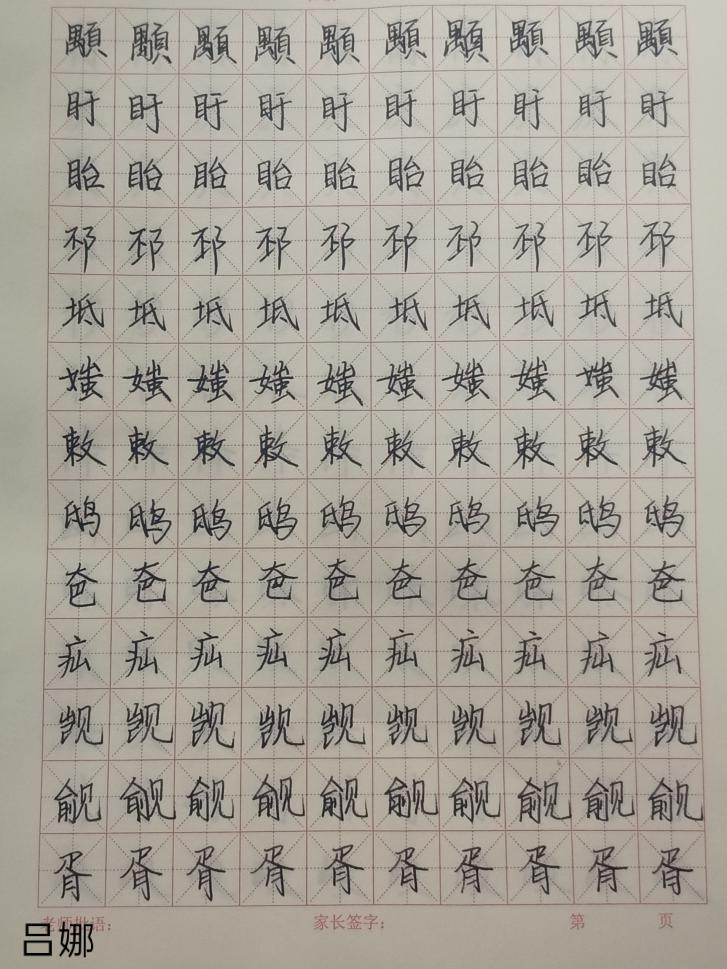 顒顒顒顒顒顒顒顒顒顒
盱盱盱盱盱盱盱盱盱盱
眙眙眙眙眙眙眙眙眙眙
邳邳邳邳邳邳邳邳邳邳
坻坻坻坻坻坻坻坻坻坻
媸媸媸媸媸媸媸媸媸媸
敕敕敕敕敕敕敕敕敕敕
鸱鸱鸱鸱鸱鸱鸱鸱鸱鸱
夿夿夿夿夿夿夿夿夿夿
疝疝疝疝疝疝疝疝疝疝
觊觊觊觊觊觊觊觊觊觊
觎觎觎觎觎觎觎觎觎觎
胥胥胥胥胥胥胥胥胥胥
老师批语： 家长签字： 第 页
吕娜